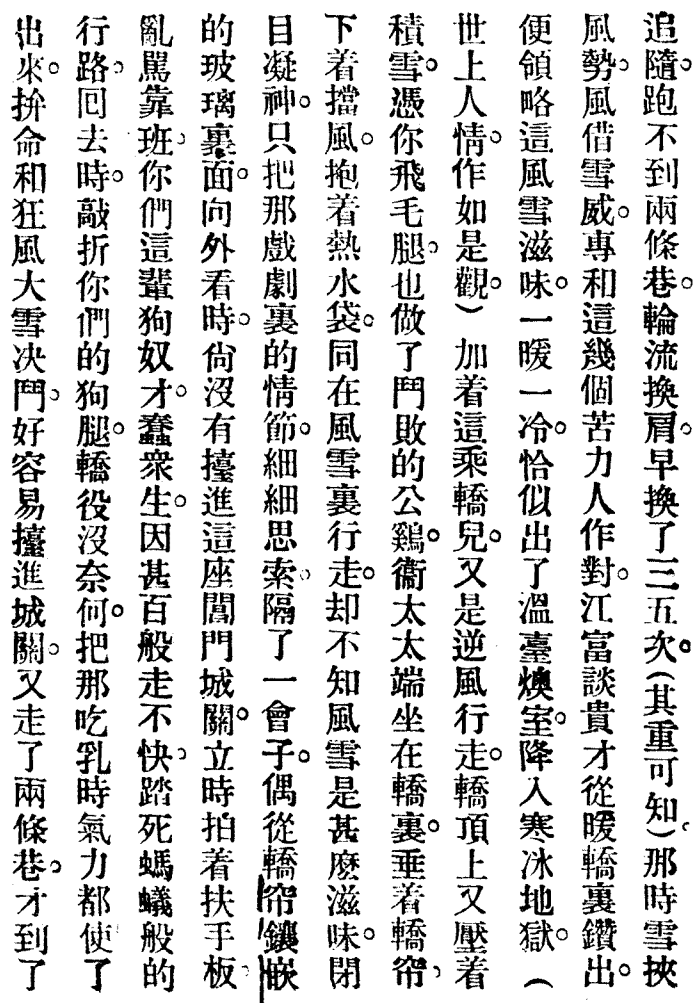 追隨。跑不到兩條巷。輪流換肩。早換了三五次。(其重可知)。那時雪挾
風勢。風借雪威。專和這幾個苦力人作對。江富談貴才從暖轎裏鑽出。
便領略這風雪滋味。一暖一冷。恰似出了溫臺煥室。降入寒冰地獄。(
世上人情。作如是觀)加着這乘轎兒。又是逆風行走。轎頂上又壓着
積雪。憑你飛毛腿。也做了鬥敗的公鷄。衞太太端坐在轎裏。垂着轎帘。
下着擋風。抱着熱水袋。同在風雪裏行走。却不知風雪是甚麽滋味。閉
目凝神。只把那戲劇裏的情節。細細思索。隔了一會子。偶從轎帘鑲嵌
的玻璃裏面。向外看時。尙沒有擡進這座閶門城關。立時拍着扶手板。
亂駡靠班。你們這輩狗奴才。蠢衆生。因甚百般走不快。踏死螞蟻般的
行路。回去時。敲折你們的狗腿。轎役沒奈何。把那吃乳時氣力都使了
出來。拚命和狂風大雪决鬥。好容易擡進城關。又走了兩條巷。才到了